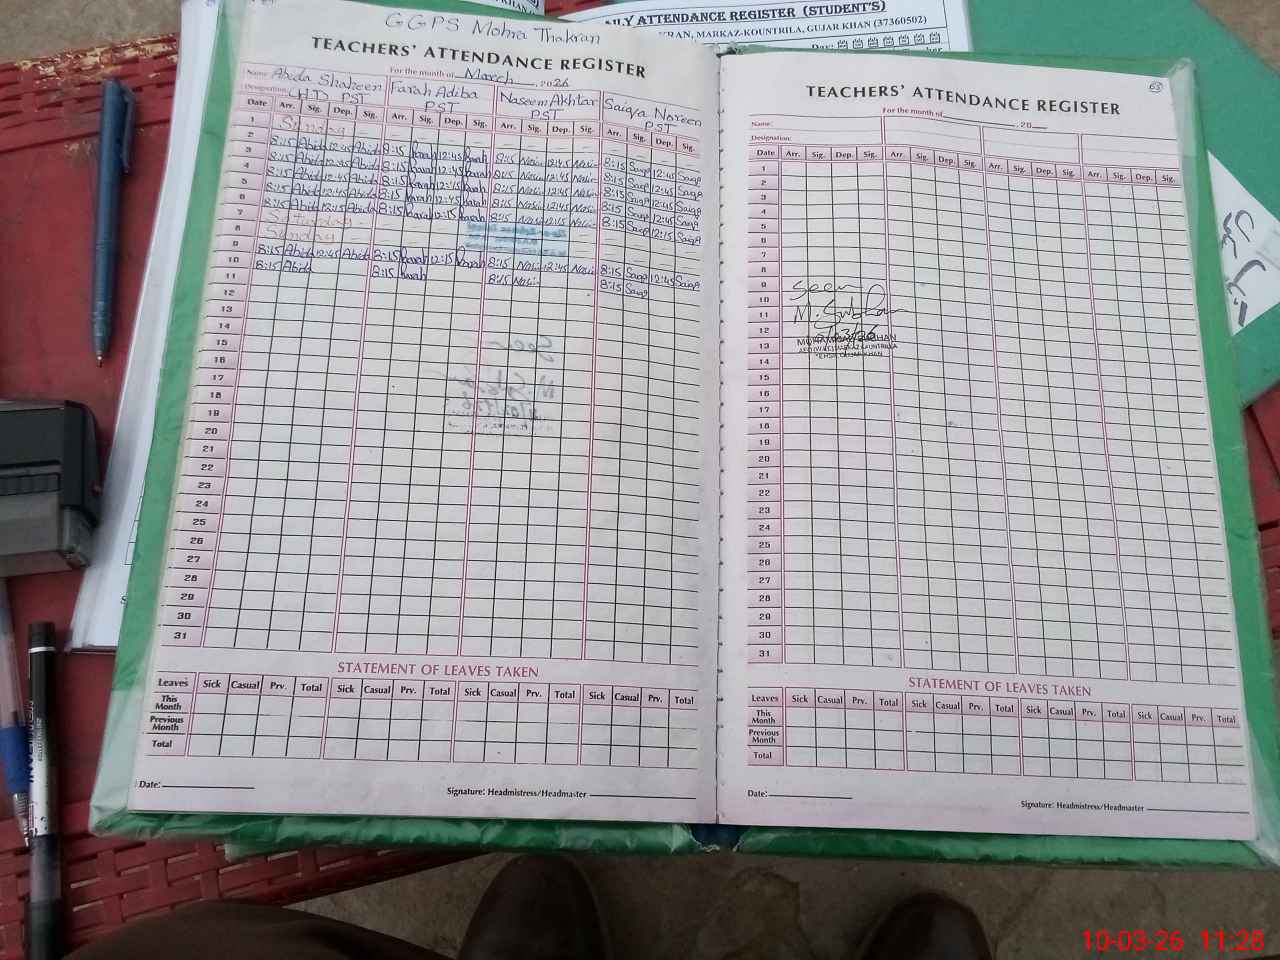 LY ATTENDANCE REGISTER (STUDENT'S)
KRAN, MARKAZ-KOUNTRILA, GUJAR KHAN (37360502)
GGPS Mohra Thakran
TEACHERS' ATTENDANCE REGISTER
For the month of March 2026
Name: Abida Shaheen Farah Adiba Naseem Akhtar Saiqa Noreen
Designation: PST PST PST PST
Date Arr. Sig. Dep. Sig. Arr. Sig. Dep. Sig. Arr. Sig. Dep. Sig. Arr. Sig. Dep. Sig.
1 Sunday
2 8:15 Abida 12:45 Abida 8:15 Farah 12:45 Farah 8:15 12:45 8:15 Saiqa 12:45 Saiqa
3 8:15 Abida 12:45 Abida 8:15 Farah 12:45 Farah 8:15 12:45 8:15 Saiqa 12:45 Saiqa
4 8:15 Abida 12:45 Abida 8:15 Farah 12:45 Farah 8:15 12:45 8:15 Saiqa 12:45 Saiqa
5 8:15 Abida 12:45 Abida 8:15 Farah 12:45 Farah 8:15 12:45 8:15 Saiqa 12:45 Saiqa
6 8:15 Abida 12:15 Abida 8:15 Farah 12:15 Farah 8:15 12:15 8:15 Saiqa 12:15 Saiqa
7 Saturday
8 Sunday
9 8:15 Abida 12:45 Abida 8:15 Farah Farah 8:15 12:45 8:15 Saiqa 12:45 Saiqa
10 8:15 Abida 8:15 Farah 8:15 8:15 Saiqa
11
12
13
14
15
16
17
18
19
20
21
22
23
24
25
26
27
28
29
30
31
STATEMENT OF LEAVES TAKEN
Leaves Sick Casual Prv. Total Sick Casual Prv. Total Sick Casual Prv. Total Sick Casual Prv. Total
This Month
Previous Month
Total
Date:
Signature: Headmistress/Headmaster
63
TEACHERS' ATTENDANCE REGISTER
For the month of , 20
Name:
Designation:
Date Arr. Sig. Dep. Sig. Arr. Sig. Dep. Sig. Arr. Sig. Dep. Sig. Arr. Sig. Dep. Sig.
1
2
3
4
5
6
7
8
9 Seen
10
11 M. Subhan
12
13
14
15
16
17
18
19
20
21
22
23
24
25
26
27
28
29
30
31
STATEMENT OF LEAVES TAKEN
Leaves Sick Casual Prv. Total Sick Casual Prv. Total Sick Casual Prv. Total Sick Casual Prv. Total
This Month
Previous Month
Total
Date:
Signature: Headmistress/Headmaster
10-03-26 11:28